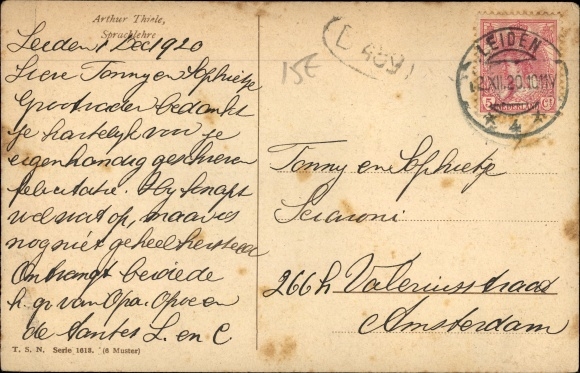 Arthur Thiele,
Sprachlehre.
Leiden 1 Dec 1920
Lieve Tonny en Sophietje
Grootvader bedankt
je hartelijk voor je
eigenhandig geschreven
felicitatie. Hy knapt
wel wat op, maar is
nog niet geheel hersteld
Ontvangt beide de
h. gr. van Opa, Opoe en
de Tantes L. en C
T. S. N. Serie 1618. (6 Muster)
15E
L 4691
LEIDEN
2 XII.20.10-11V
4
5 NEDERLAND CT
Tonny en Sophietje
Sciarone
266 h Valeriusstraat
Amsterdam